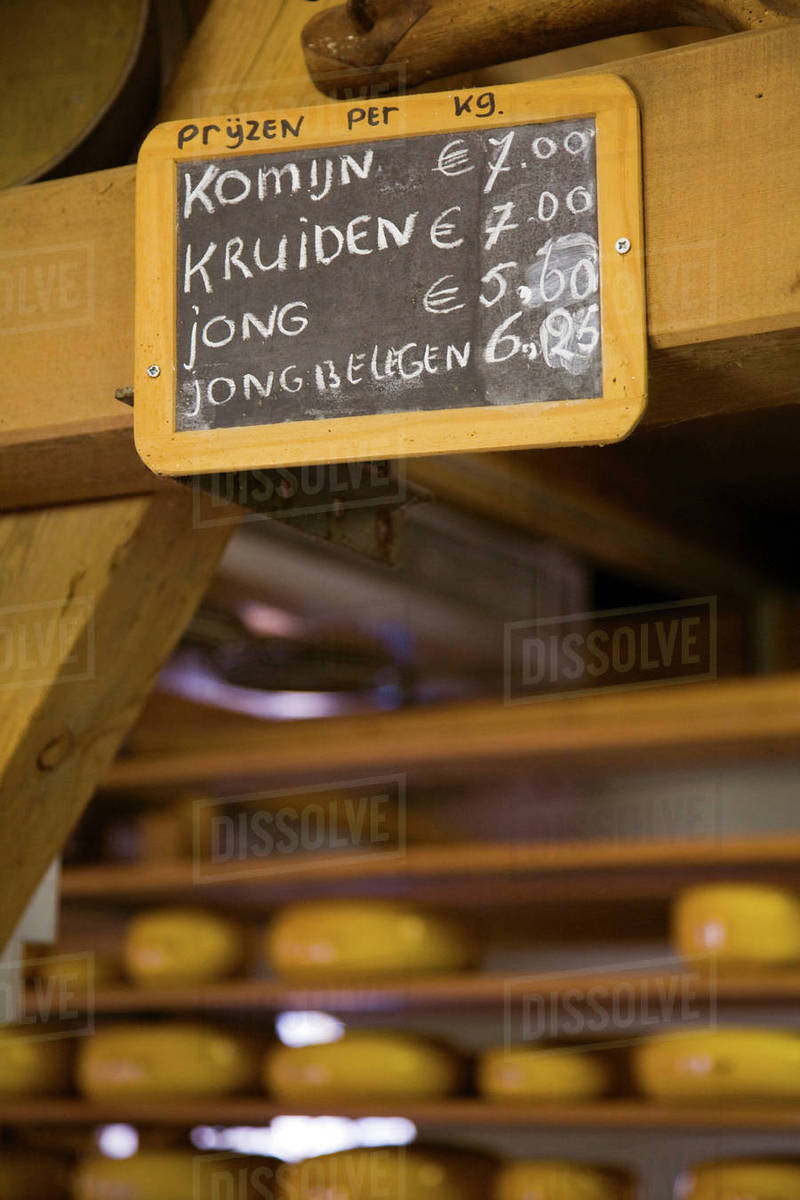 PRIJZEN PER KG.
KOMIJN € 7.00
KRUIDEN € 7.00
JONG € 5,60
JONG BELEGEN 6,25
DISSOLVE
DISSOLVE
DISSOLVE
DISSOLVE
DISSOLVE
DISSOLVE
DISSOLVE